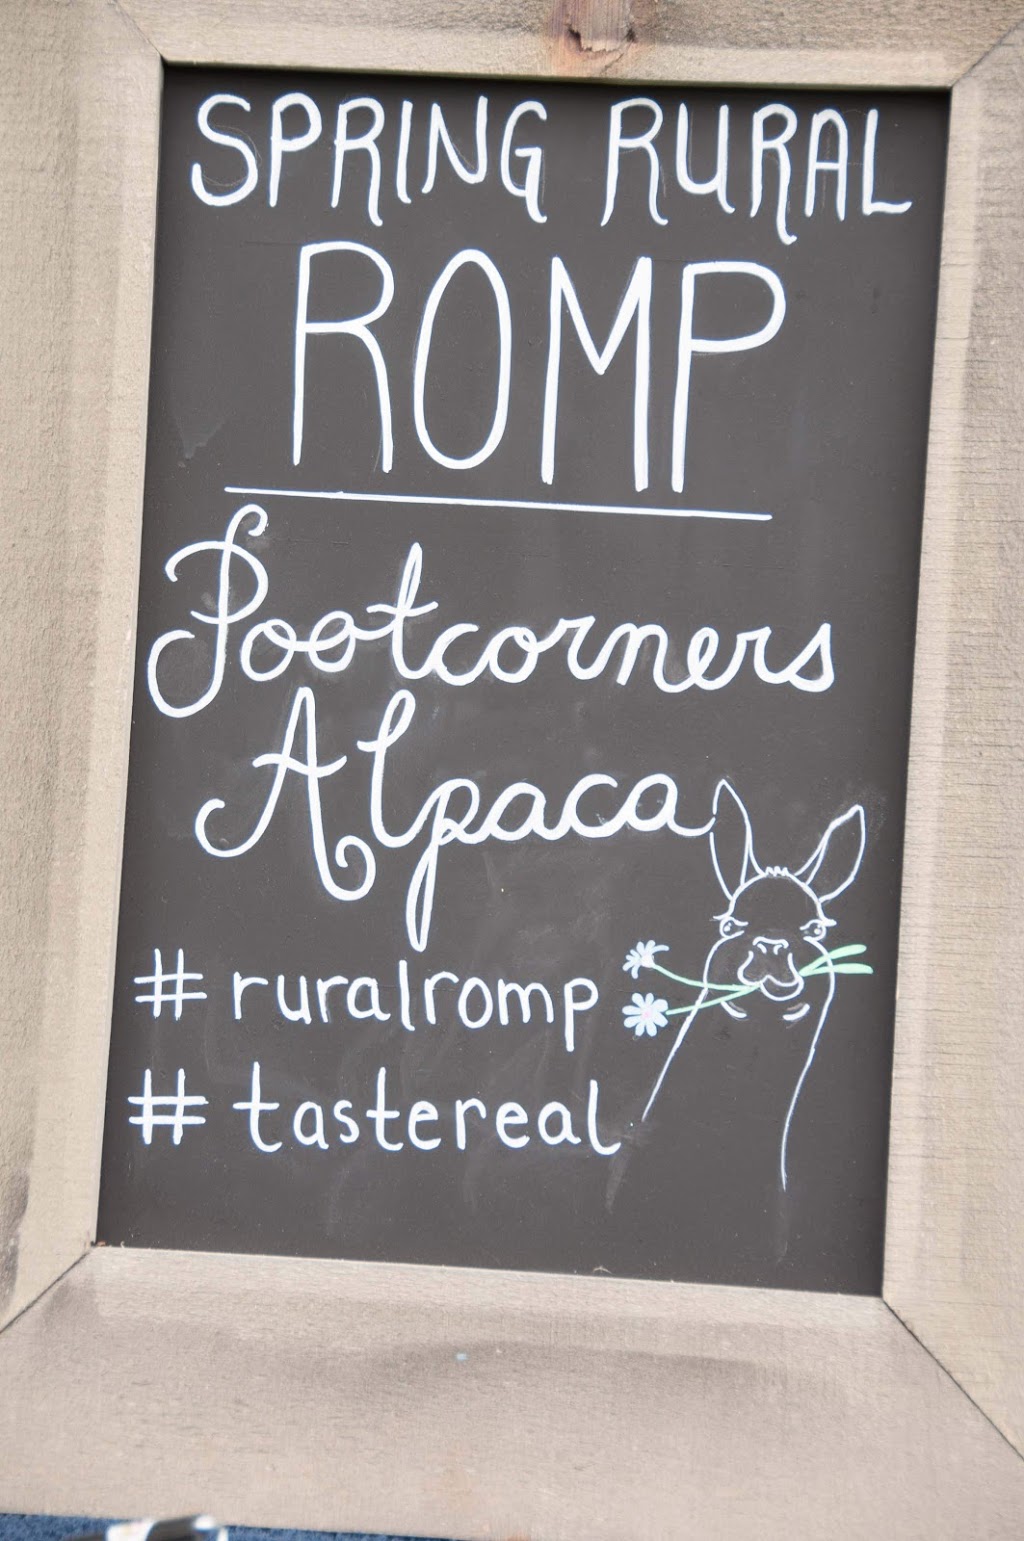 SPRING RURAL
ROMP
Pootcorners
Alpaca
#ruralromp
#tastereal